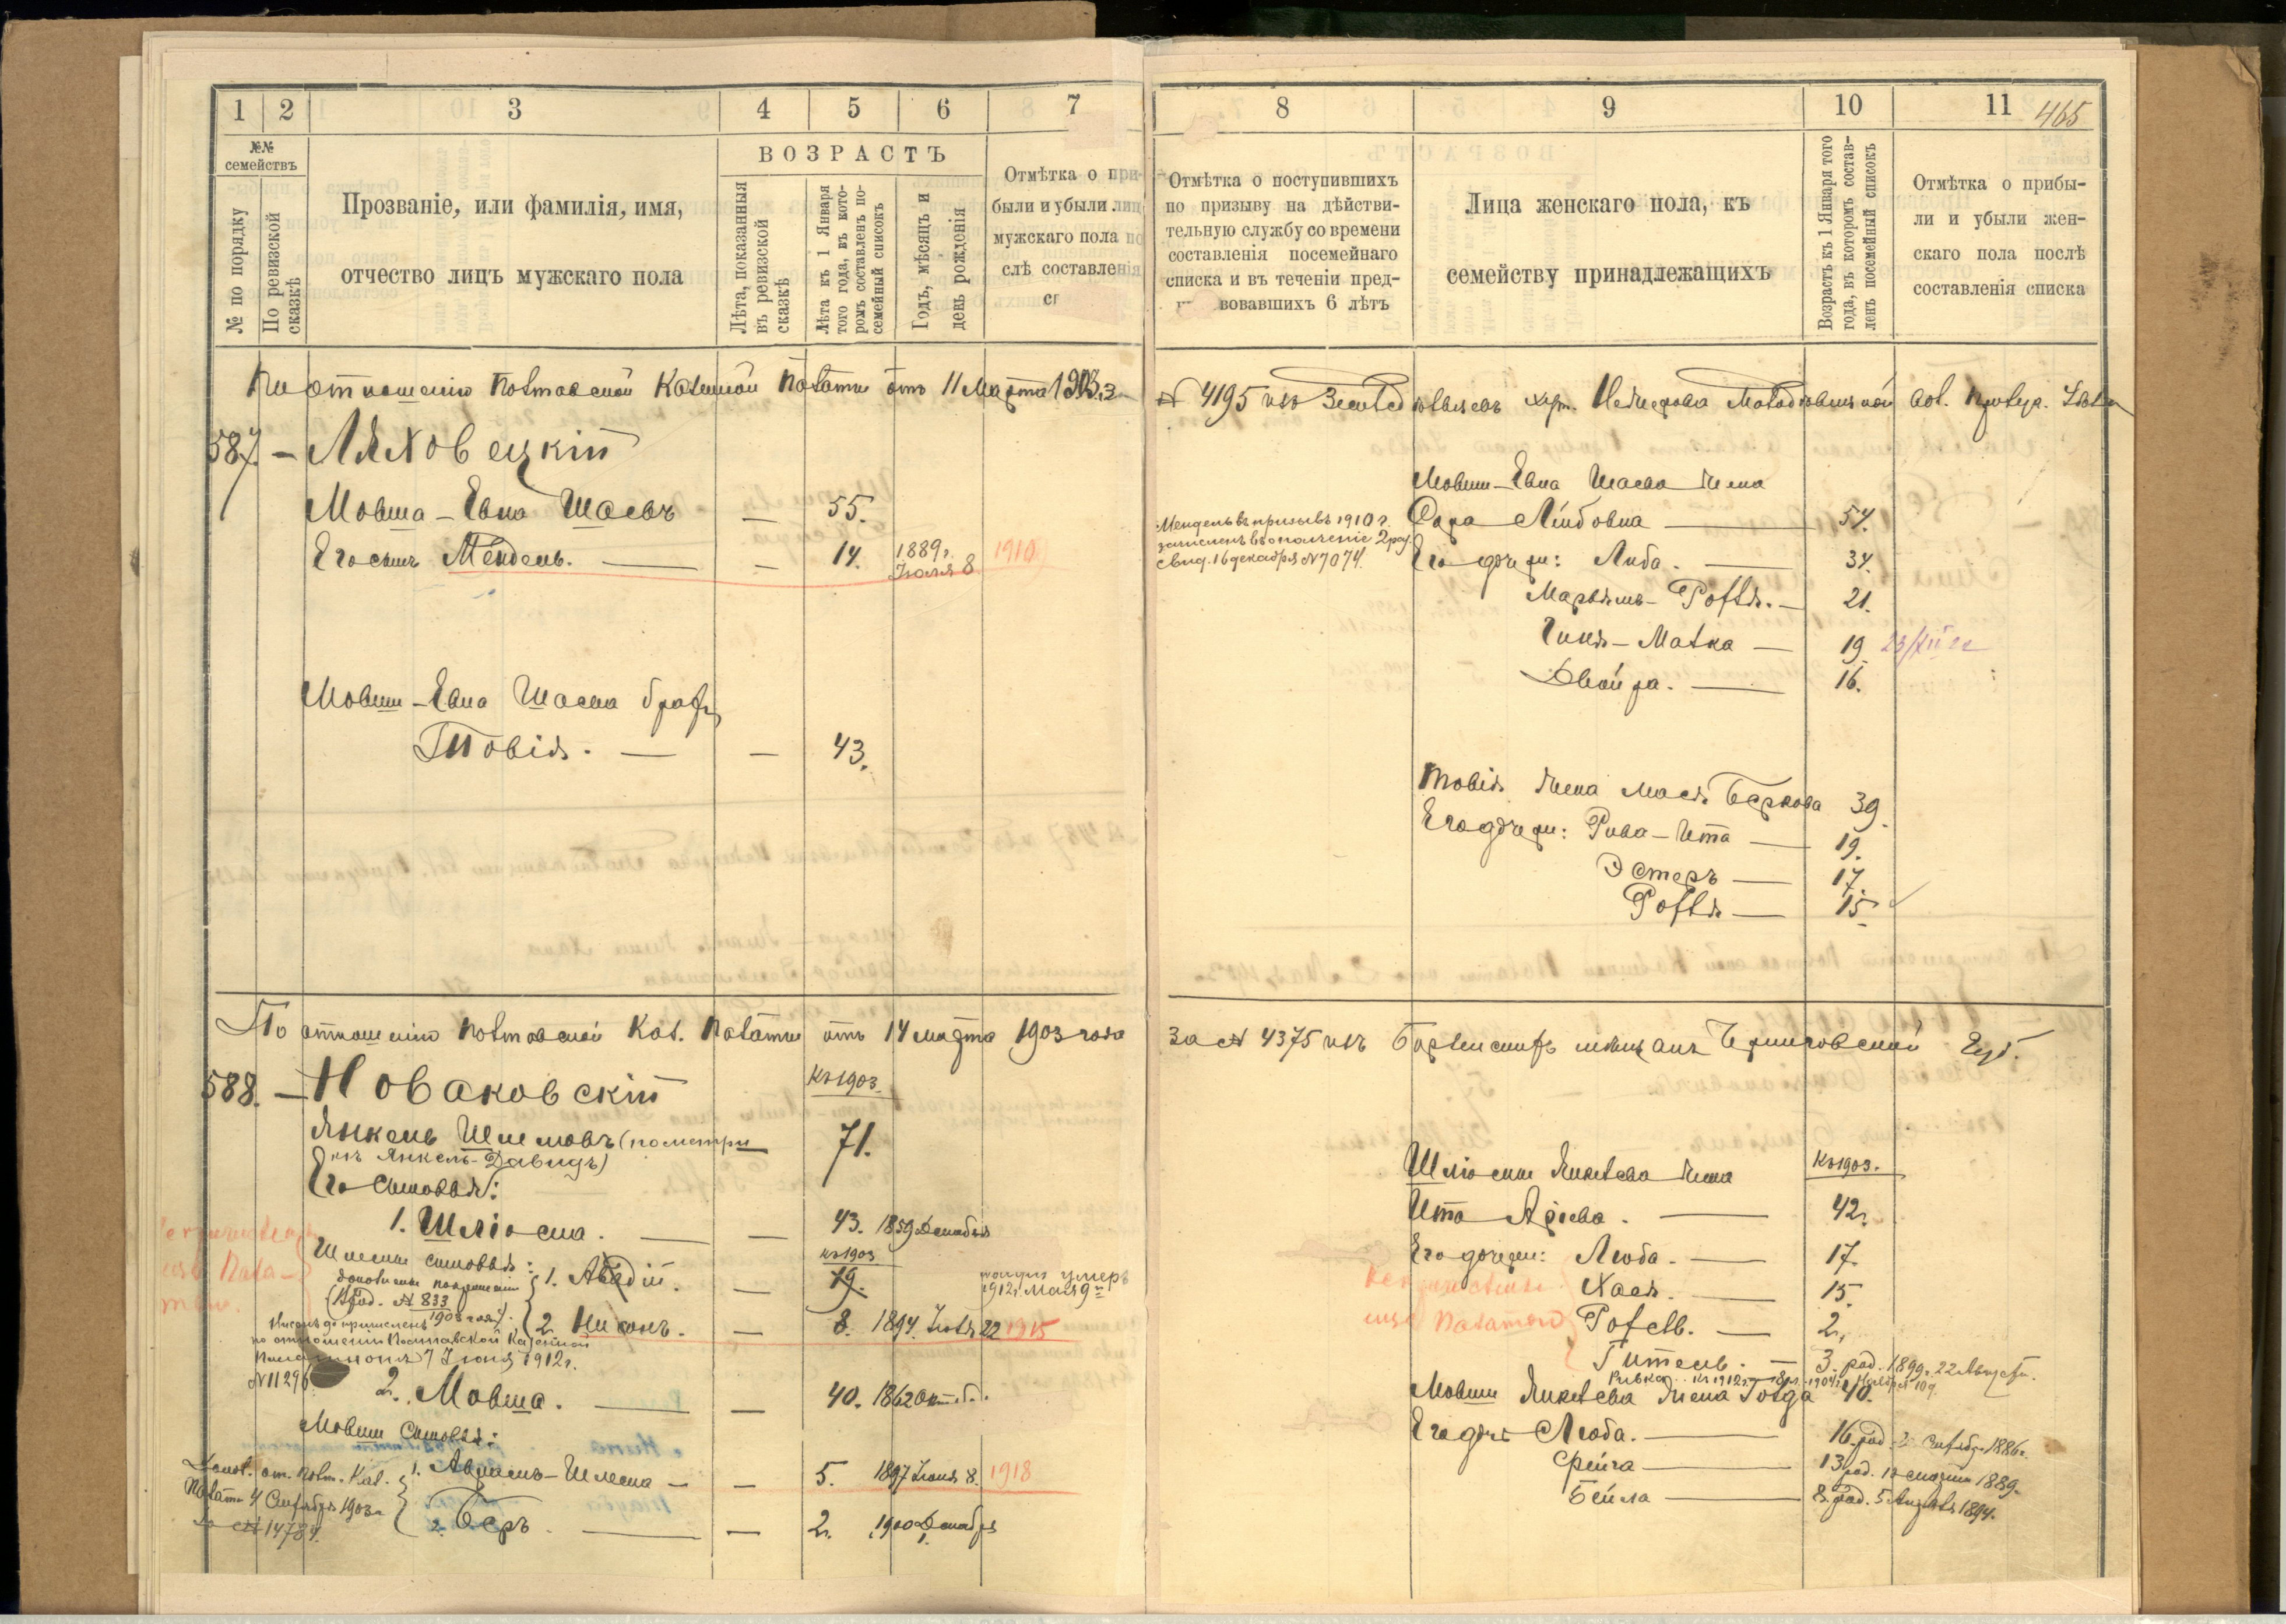 1 2 3 4 5 6 7
№№ семействъ
№ по порядку
По ревизской сказкѣ
Прозваніе, или фамилія, имя,
отчество лицъ мужскаго пола
ВОЗРАСТЪ
Лѣта, показанныя въ ревизской сказкѣ
Лѣта къ 1 Января того года, въ которомъ составленъ посемейный списокъ
Годъ, мѣсяцъ и день рожденія
Отмѣтка о при-
были и убыли лиц
мужскаго пола по
слѣ составленія
По отношенію Полтавской Казенной Палаты отъ 11 Марта 1903 г.
587. — Ляховецкій
Мовша-Евна Шаевъ — 55.
Его сынъ Мендель. — — 14. 1889 г. Іюля 8 1910
Мовши-Евна Шаева братъ
Товія. — — 43.
По отношенію Полтавской Каз. Палаты отъ 14 марта 1903 года
588. — Новаковскій
Къ 1903.
Янкель Шлемовъ (по метри
Янкель-Давидъ) 71.
Его сыновья:
1. Шліома. — — 43. 1859 Декабря
Шлемы сыновья: къ 1903
1. Авадій. — 19. умеръ 1912 г. Мая 9
№ 833
1903 года
2. Нисонъ. — 8. 1894. Іюля 22 1915
Нисонъ до причисленъ
по отношенію Полтавской Казенной
Палаты 7 Іюня 1912 г.
№ 11296
2. Мовша. — — 40. 1862 Октяб.
Мовши сыновья:
1. Аврамъ-Шлема — — 5. 1897 Іюня 8. 1918
Допол. от. Полт. Каз.
Палаты 4 Сентября 1903 г.
за № 14784.
2. Беръ. — — 2. 1900 Декабря 1.
8 9 10 11 465
Отмѣтка о поступившихъ
по призыву на дѣйстви-
тельную службу со времени
составленія посемейнаго
списка и въ теченіи пред-
вовавшихъ 6 лѣтъ
Лица женскаго пола, къ
семейству принадлежащихъ
Возрастъ къ 1 Января того года, въ которомъ составленъ посемейный списокъ
Отмѣтка о прибы-
ли и убыли жен-
скаго пола послѣ
составленія списка
№ 4195 изъ Земледѣльцевъ
Мовши-Евна Шаева жена
Сара Лейбовна — 54.
Мендель въ призывъ 1910 г.
зачисленъ въ ополченіе 2 раз.
свид. 16 декабря № 7074.
Его дочери: Либа. — 34.
Марьямъ-Рохля. — 21.
Гиня-Малка — 19. 23/XII 22
Двойра. — 16.
Товія жена Мася Беркова 39.
Его дочери: Рива-Ита — 19.
Эстеръ — 17.
Рохля — 15
За № 4375 изъ мѣщанъ Черниговской Губ.
Шліомы Янкелева жена Къ 1903.
Ита Арiева. — 42.
Его дочери: Люба. — 17.
Хася. — 15.
Рохель. — 2.
Гитель. — 3. род. 1899 г. 22 Августа.
Ривка къ 1912 г.
Мовши Янкелева жена Голда 40.
Его дочь Люба. — 16. род. 2 Сентябр. 1886 г.
Фейга — 13 род. 12 марта 1889.
Бейла — 8. род. 5 Августа 1894.